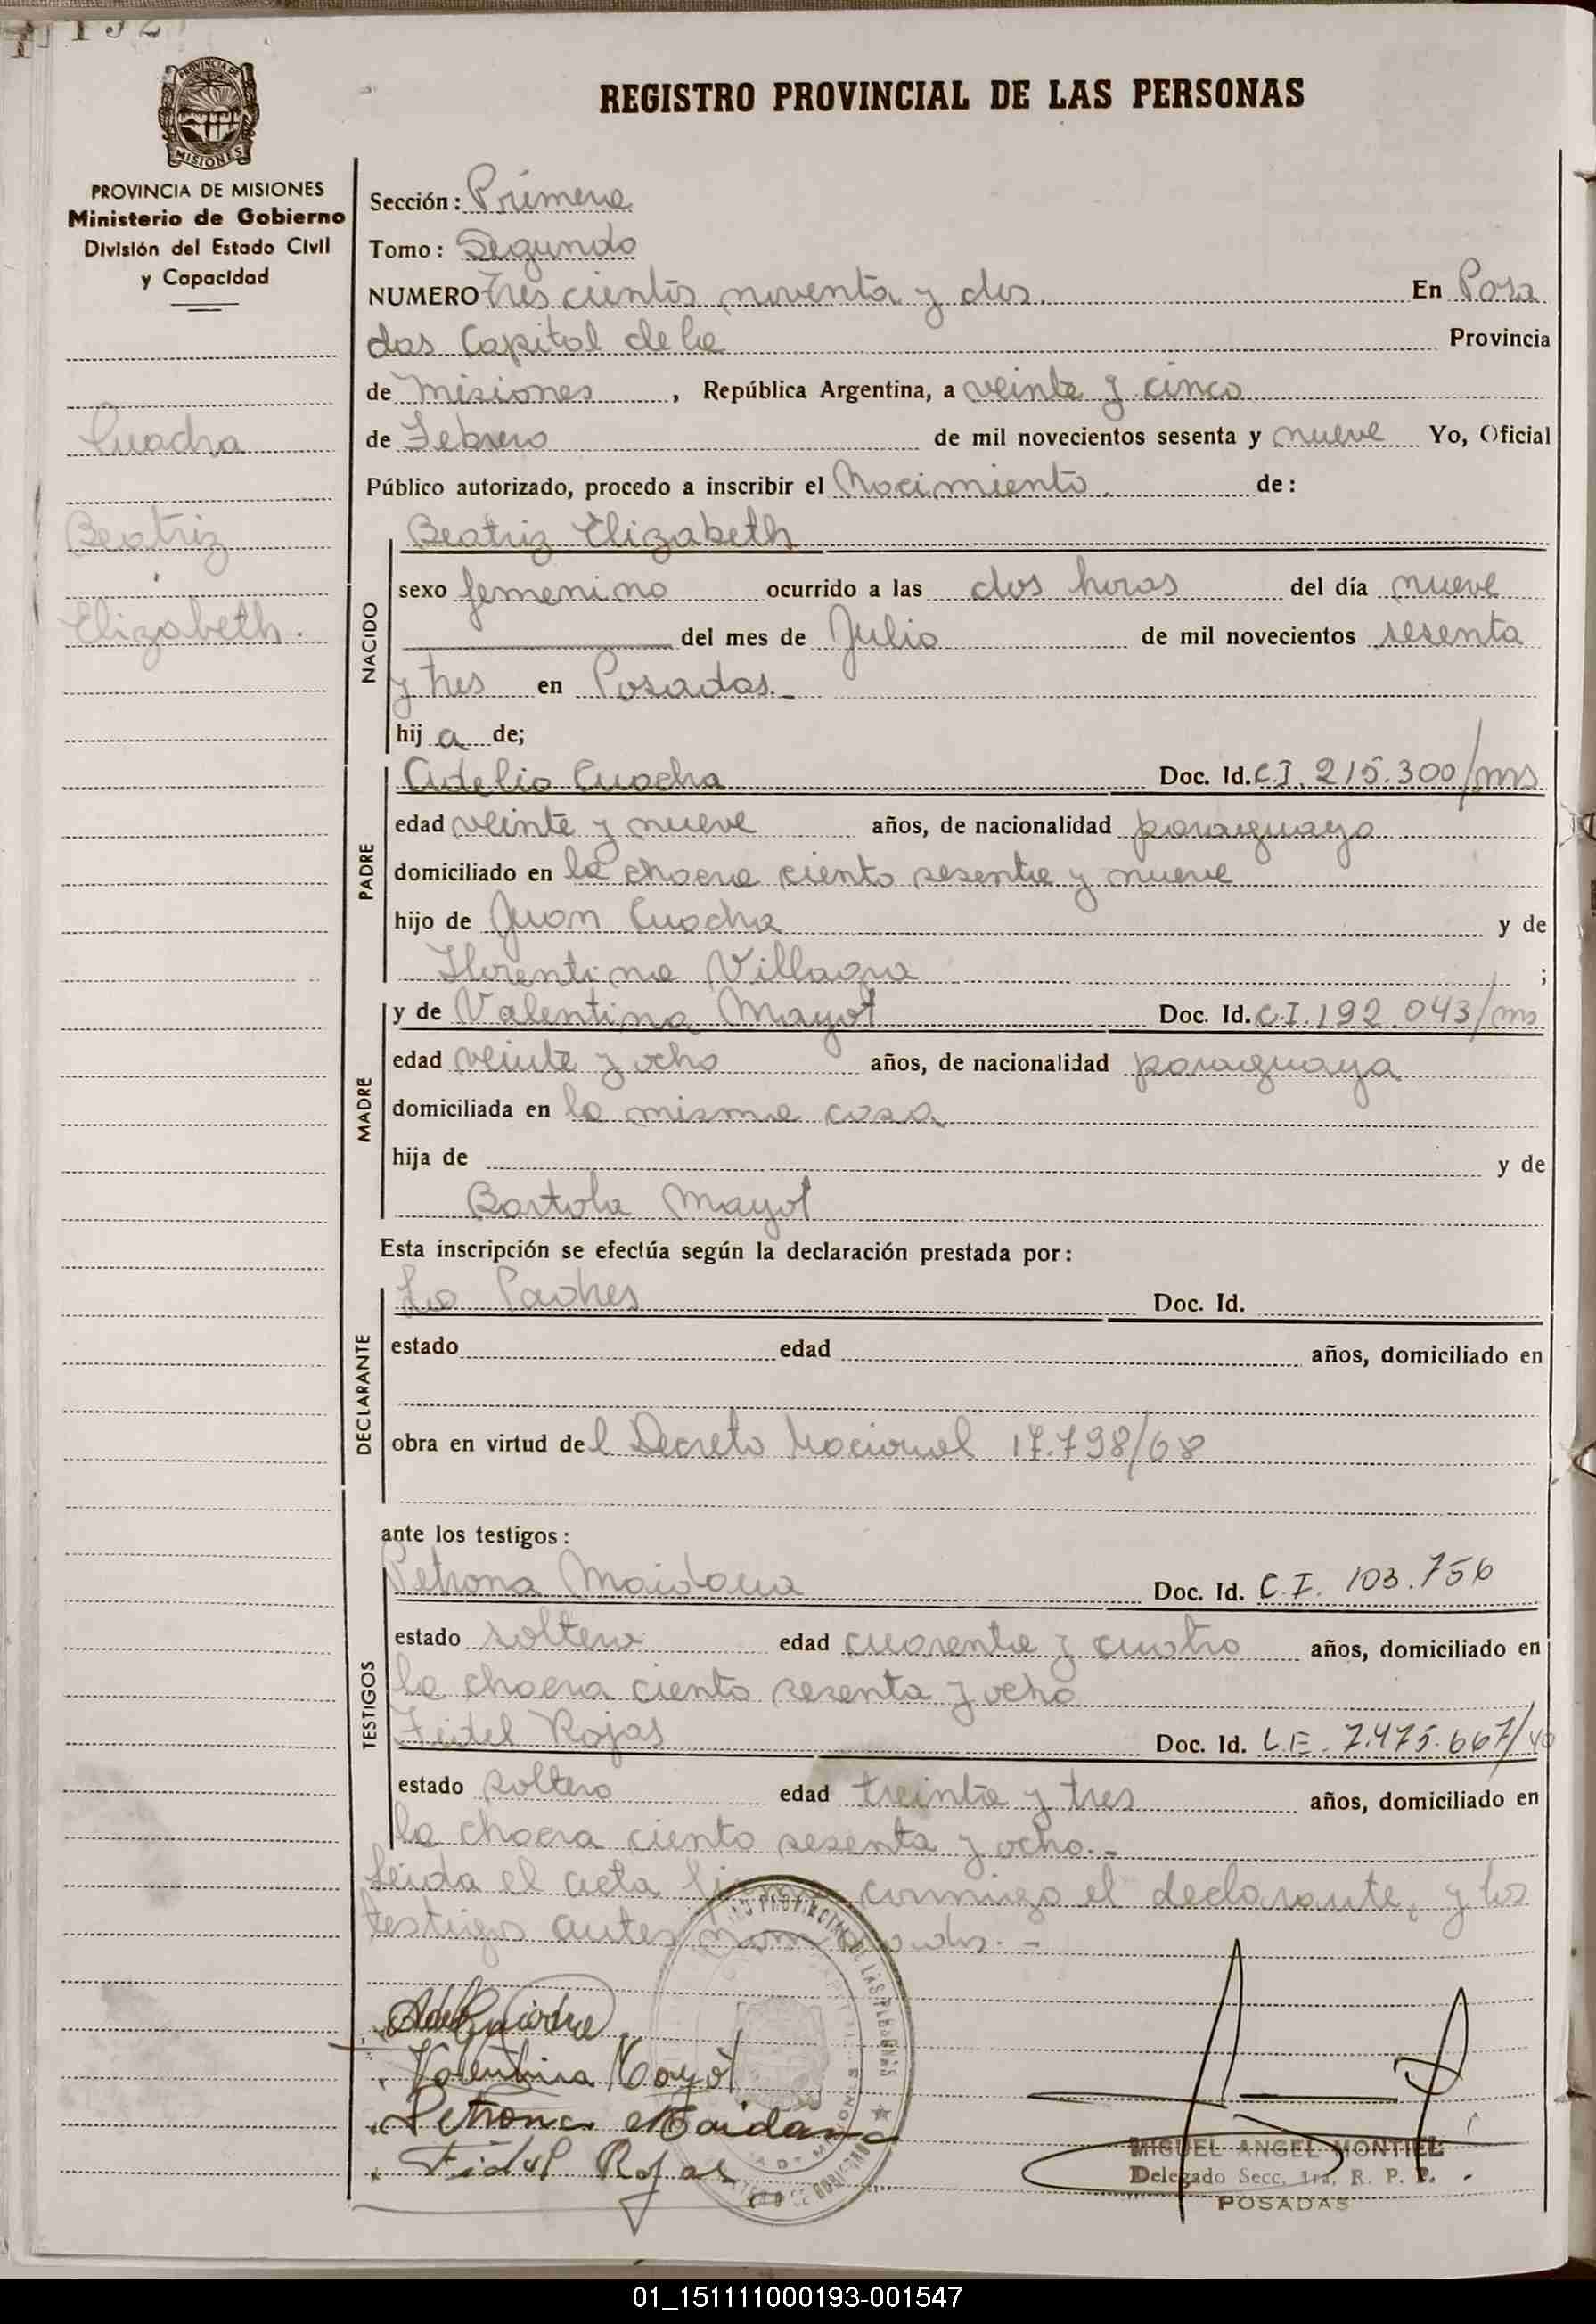 REGISTRO PROVINCIAL DE LAS PERSONAS
MISIONES
PROVINCIA DE MISIONES
Ministerio de Gobierno
División del Estado Civil
y Capacidad
Cuadra
Beatriz
Elizabeth.
Sección: Primera
Tomo: Segundo
NUMERO Trescientos noventa y dos. En Posa
das Capital de la Provincia
de Misiones, República Argentina, a veinte y cinco
de Febrero de mil novecientos sesenta y nueve Yo, Oficial
Público autorizado, procedo a inscribir el Nacimiento. de:
Beatriz Elizabeth
NACIDO
sexo femenino ocurrido a las dos horas del día nueve
del mes de Julio de mil novecientos sesenta
y tres en Posadas.-
hija de;
PADRE
Adelio Cuadra Doc. Id. C.I. 215.300/ms
edad veinte y nueve años, de nacionalidad paraguayo
domiciliado en la chacra ciento sesenta y nueve
hijo de Juan Cuadra y de
Florentina Villagra ;
MADRE
y de Valentina Mayot Doc. Id. C.I. 192.043/ms
edad veinte y ocho años, de nacionalidad paraguaya
domiciliada en la misma casa
hija de y de
Bartola Mayot
Esta inscripción se efectúa según la declaración prestada por:
DECLARANTE
Lo Padres Doc. Id.
estado edad años, domiciliado en
obra en virtud del Decreto Nacional 17.798/68
ante los testigos:
TESTIGOS
Petrona Maidana Doc. Id. C.I. 103.756
estado soltera edad cuarenta y cuatro años, domiciliado en
la chacra ciento sesenta y ocho
Fidel Rojas Doc. Id. L.E. 7.475.667/40
estado soltero edad treinta y tres años, domiciliado en
la chacra ciento sesenta y ocho.-
Leida el acta firma conmigo el declarante, y los
testigos antes nombrados.-
Valentina Mayot
Petrona Maidana
Fidel Rojas
MIGUEL ANGEL MONTIEL
Delegado Secc. 1ra. R. P. P.
POSADAS
01_151111000193-001547